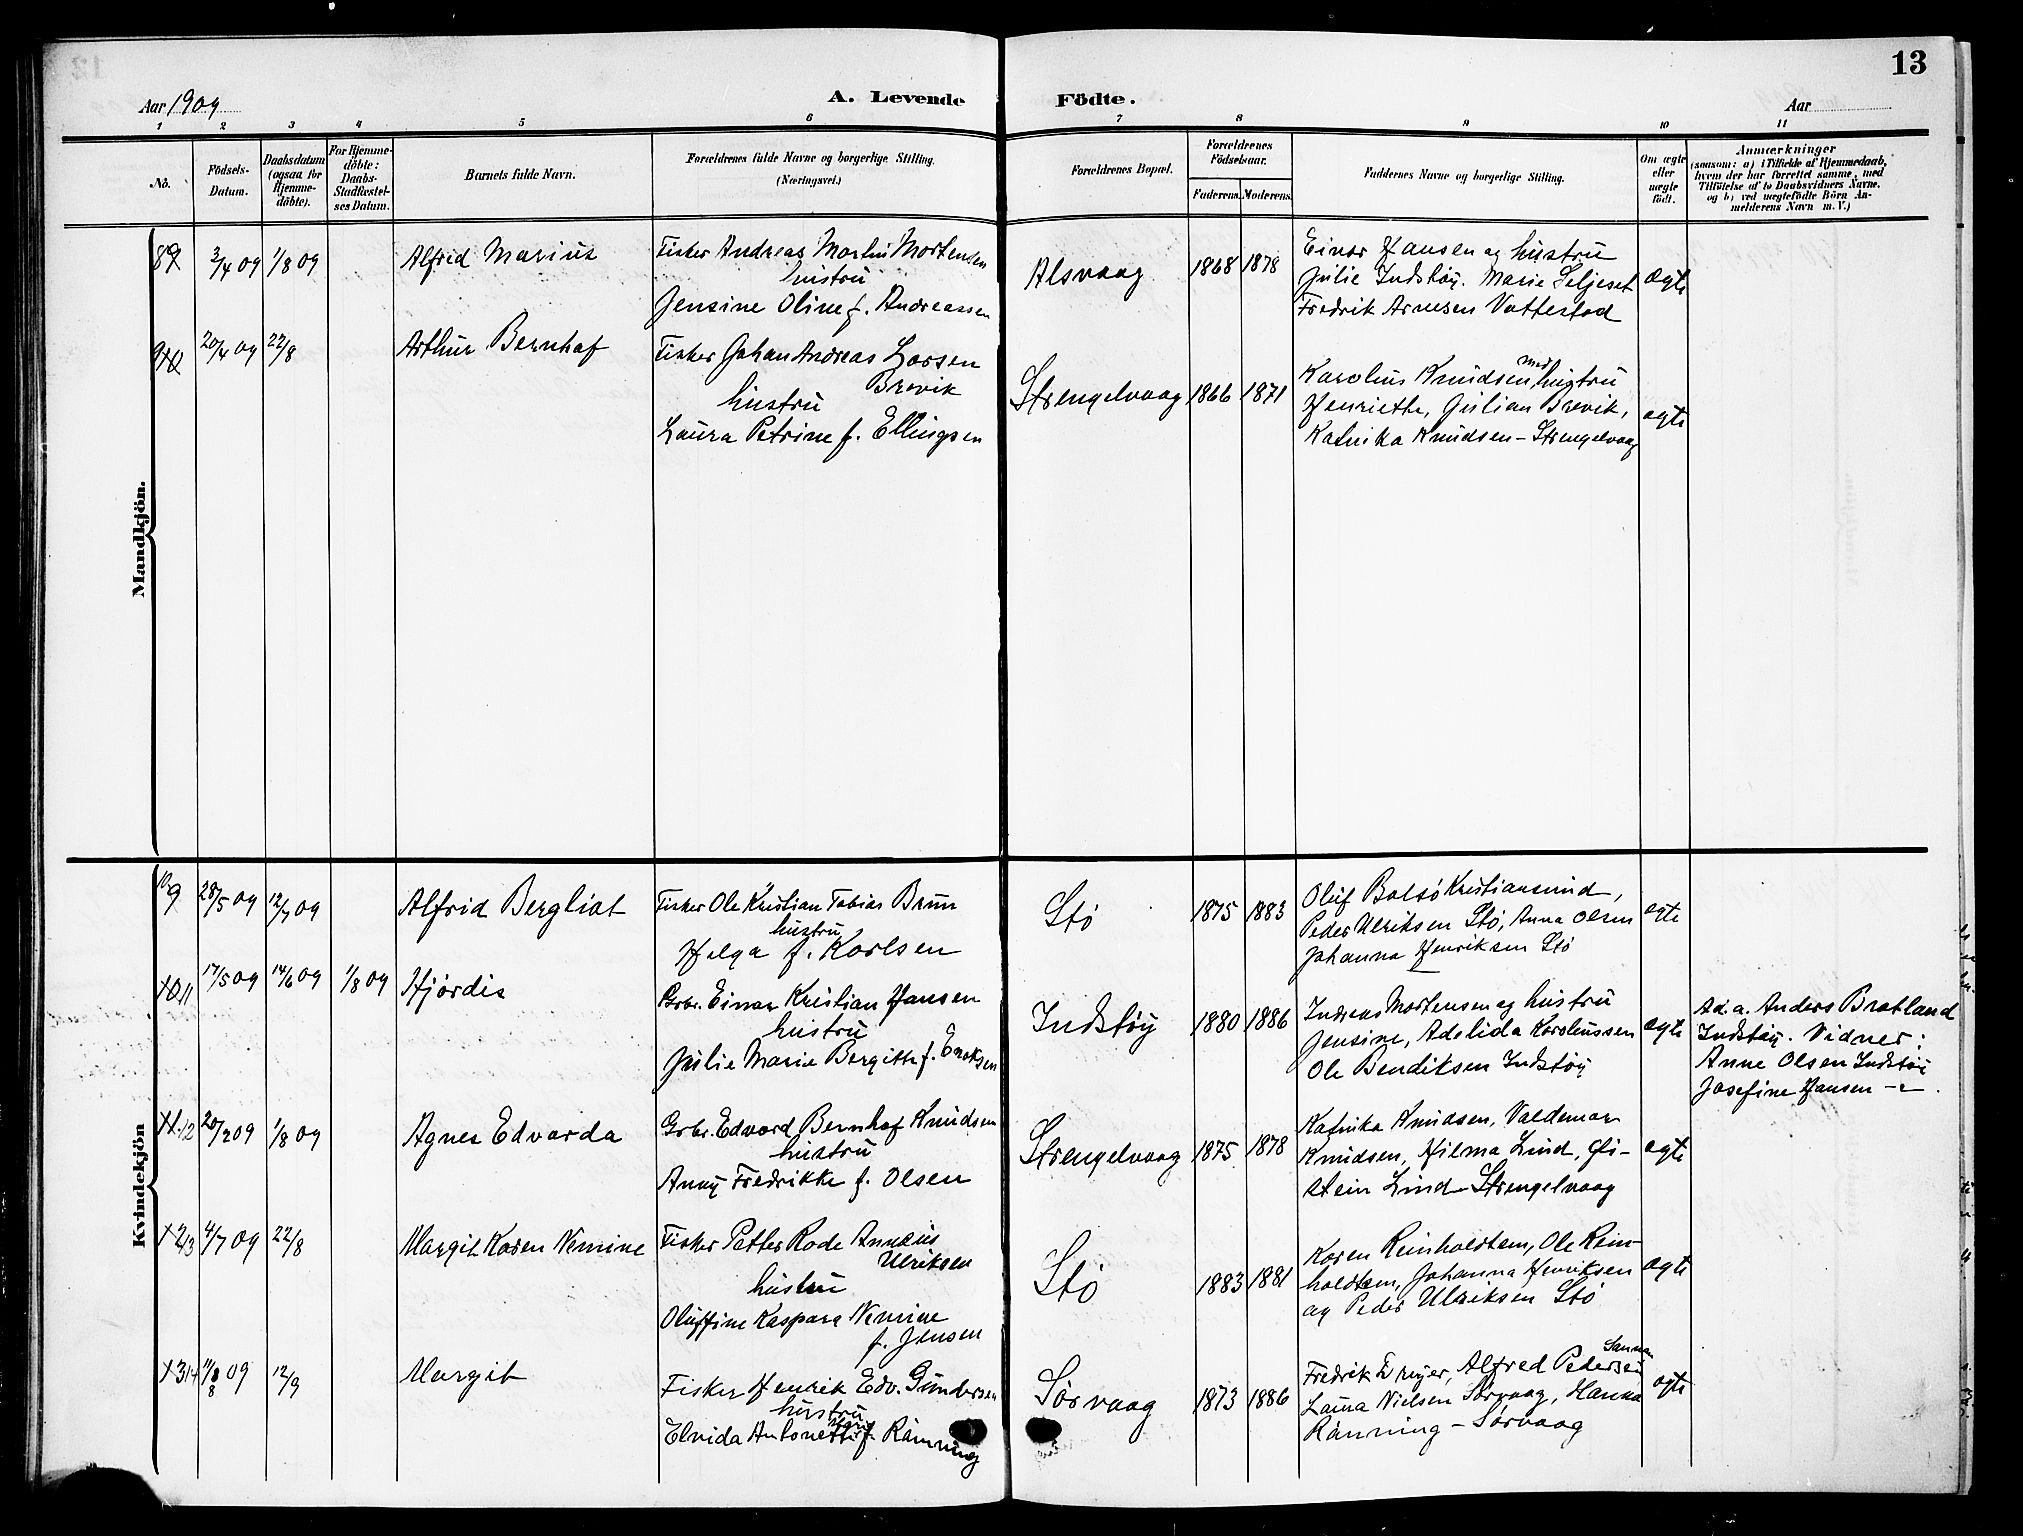 13
Aar 1909
A. Levende Födte.
Aar
1 2 3 4 5 6 7 8 9 10 11
No.
Födsels-Datum.
Daabsdatum (ogsaa for Hjemme-döbte).
For Hjemme-döbte: Daabs-Stadfæstel-ses Datum.
Barnets fulde Navn.
Forældrenes fulde Navne og borgerlige Stilling.
(Næringsvei.)
Forældrenes Bopæl.
Forældrenes Födselsaar.
Faderens. Moderens.
Faddernes Navne og borgerlige Stilling.
Om ægte eller uægte födt.
Anmærkninger
(saasom: a) i Tilfælde af Hjemmedaab,
hvem der har forrettet samme, med
Tilföielse af to Daabsvidners Navne,
og b) ved uægtefödte Börn An-
melderens Navn m. V.)
Mandkjön.
89 3/4 09 1/8 09 Alfrid Marius
Fisker Andreas Martin Mortensen
hustru
Jensine Oline f. Andreassen
Alsvaag 1868 1878
Einar Hansen og hustru
Julie Indstöy. Marie Seljeset
Fredrik Arnesen Vottestad
ægte
20/4 09 22/8 Arthur Bernhof
Fisker Johan Andreas Larsen
Brevik
hustru
Laura Petrine f. Ellingsen
Strengelvaag 1866 1871
Karolius Knudsen med hustru
Henriette, Julian Brevik,
Katinka Knudsen - Strengelvaag
ægte
Kvindekjön
10 9 28/5 09 12/7 09 Alfrid Bergliot
Fisker Ole Kristian Tobias Brun
hustru
Helga f. Karlsen
Stö 1875 1883
Oluf Bolsö Kristiansund,
Peder Ulriksen Stö, Anna Olsen
Johanna Henriksen Stö
ægte
10 11 17/5 09 14/6 09 1/8 09 Hjördis
Grbr. Einar Kristian Hansen
hustru
Julie Marie Bergitte f. Enoksen
Indstöy 1880 1886
Andreas Mortensen og hustru
Jensine, Adelida Karoliussen
Ole Bendiksen Indstöy
ægte
Ad. a. Anders Bratland
Indstöy. Vidner:
Anne Olsen Indstöy
Josefine Hansen
11 12 20/2 09 1/8 09 Agnes Edvarda
Grbr. Edvard Bernhof Knudsen
hustru
Anny Fredrikke f. Olsen
Strengelvaag 1875 1878
Katinka Knudsen, Valdemar
Knudsen, Hilma Lind,
stein Lind - Strengelvaag
ægte
12 13 4/7 09 22/8 Margit Karen Nemine
Fisker Petter Rode Annæus
Ulriksen
hustru
Oluffine Kaspara Nemine
f. Jensen
Stö 1883 1881
Karen Reinholdtsen, Ole Rein-
holdtsen, Johanna Henriksen
og Peder Ulriksen Stö
ægte
13 14 11/8 09 12/9 Margit
Fisker Henrik Edv. Gundersen
hustru
Elvida Antonette Marie f. Rånning
Sörvaag 1873 1886
Fredrik Dreyer, Alfred Pedersen
Laura Nielsen Sörvaag, Hanna
Rånning - Sörvaag
ægte